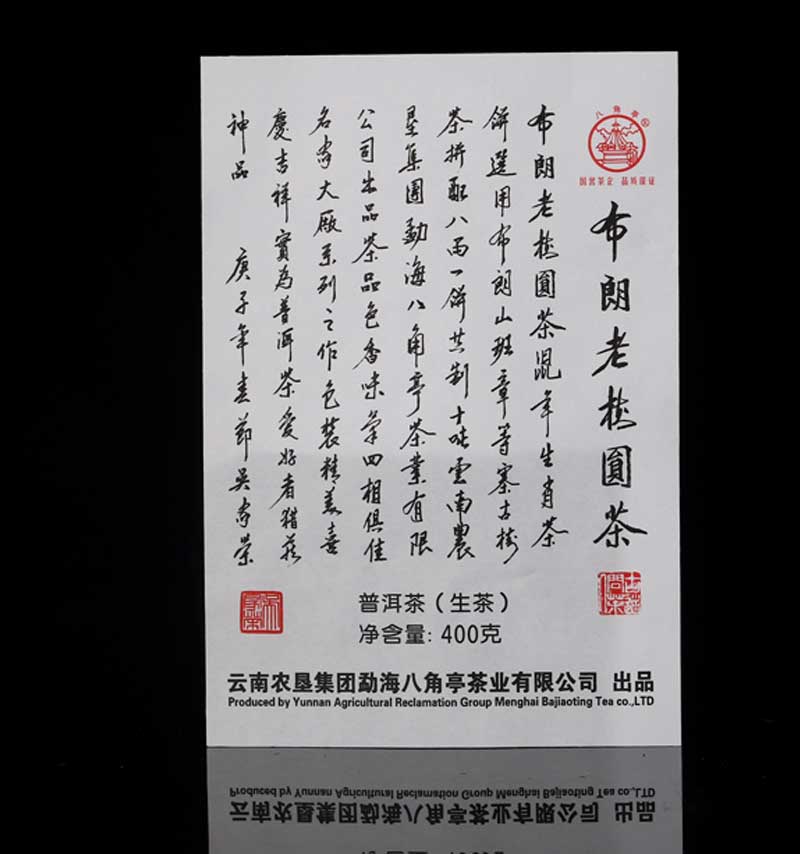 八角亭®
国营茶企 品质保证
布朗老樹圓茶
布朗老樹圓茶鼠年生肖茶
餅選用布朗山班章等寨古樹
茶拼配八兩一餅共制十吨雲南農
墾集團勐海八角亭茶業有限
公司出品茶品色香味氣四相俱佳
名家大廠系列之作包裝精美喜
慶吉祥實為普洱茶愛好者猎藏
神品 庚子年春節吳家榮
普洱茶(生茶)
净含量: 400克
云南农垦集团勐海八角亭茶业有限公司 出品
Produced by Yunnan Agricultural Reclamation Group Menghai Bajiaoting Tea co.,LTD